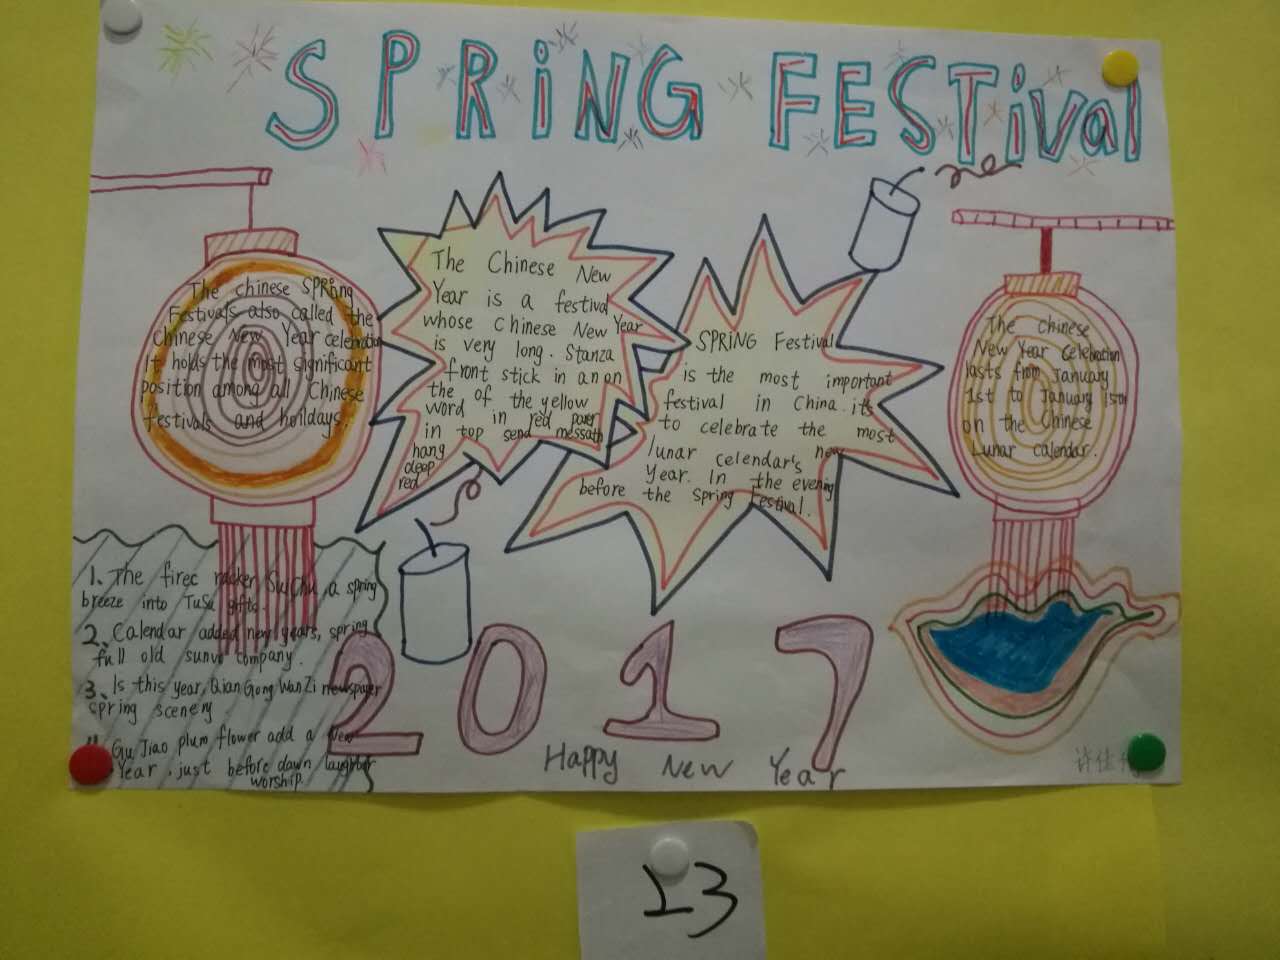 SPRiNG FESTival
The chinese SPRing
Festivals also called the
Chinese New Year celebration
It holds the most significant
position among all Chinese
festivals and hoildays.
The Chinese New
Year is a festival
whose Chinese New Year
is very long. Stanza
front stick in an on
the of the yellow
word in red paver
in top send messath
hang
deep
red
SPRiNG Festival
is the most important
festival in China. it's
to celebrate the most
lunar celendar's new
Year. In the evening
before the Spring Festival.
The chinese
New Year Celebration
lasts from January
1st to January 15th
on the Chinese
Lunar calendar.
1、The firec racker Sui Chu, a spring
breeze into TuSu gifts.
2、Calendar added new years, spring
full old sunvo company.
3、Is this year, Qian Gong Wan Zi newspaper
spring scenery.
Gu Jiao plum flower add a New
Year, just before dawn laughter
worship.
2017
Happy New Year
许佳
13